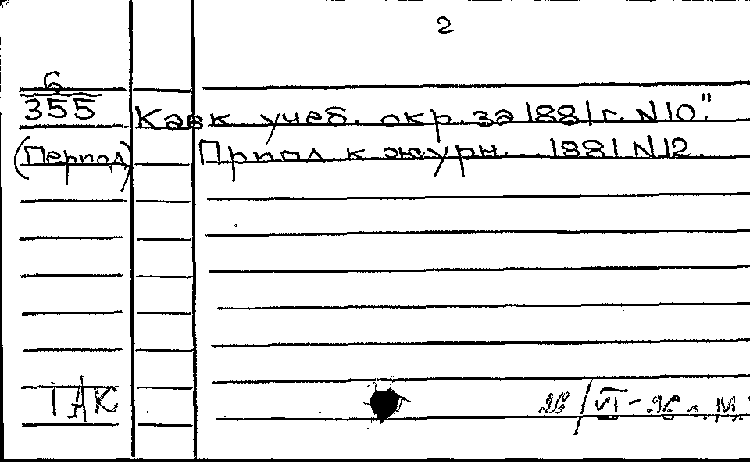 2
6
355 Кавк. учеб. окр. за 1881 г. N 10".
(Период) Прилож к журн. 1881 N 12.
ІАК
26/VI-36 г. М.